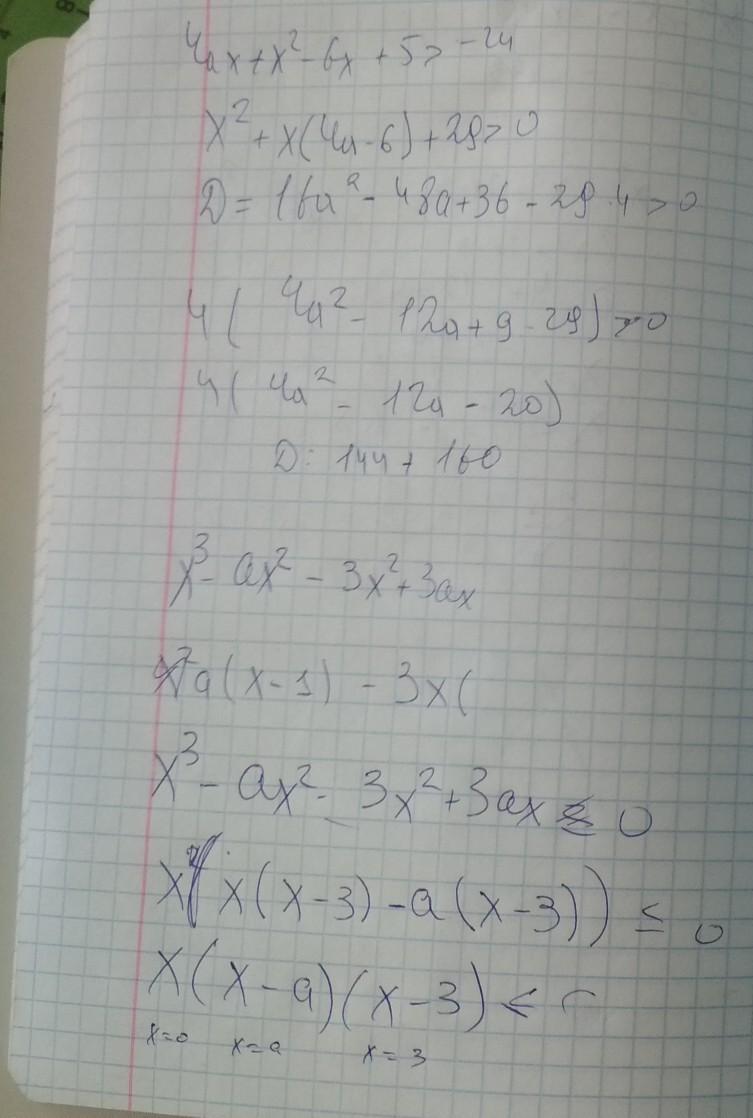 4ax + x² - 6x + 5 > -24
x² + x(4a-6) + 29 > 0
D = 16a² - 48a + 36 - 29·4 > 0
4( 4a² - 12a + 9 - 29) > 0
4( 4a² - 12a - 20)
D: 144 + 160
x³ - ax² - 3x² + 3ax
a(x-1) - 3x(
x³ - ax² - 3x² + 3ax ≤ 0
x( x(x-3) - a(x-3)) ≤ 0
x(x-a)(x-3) <
x=0 x=a x=3